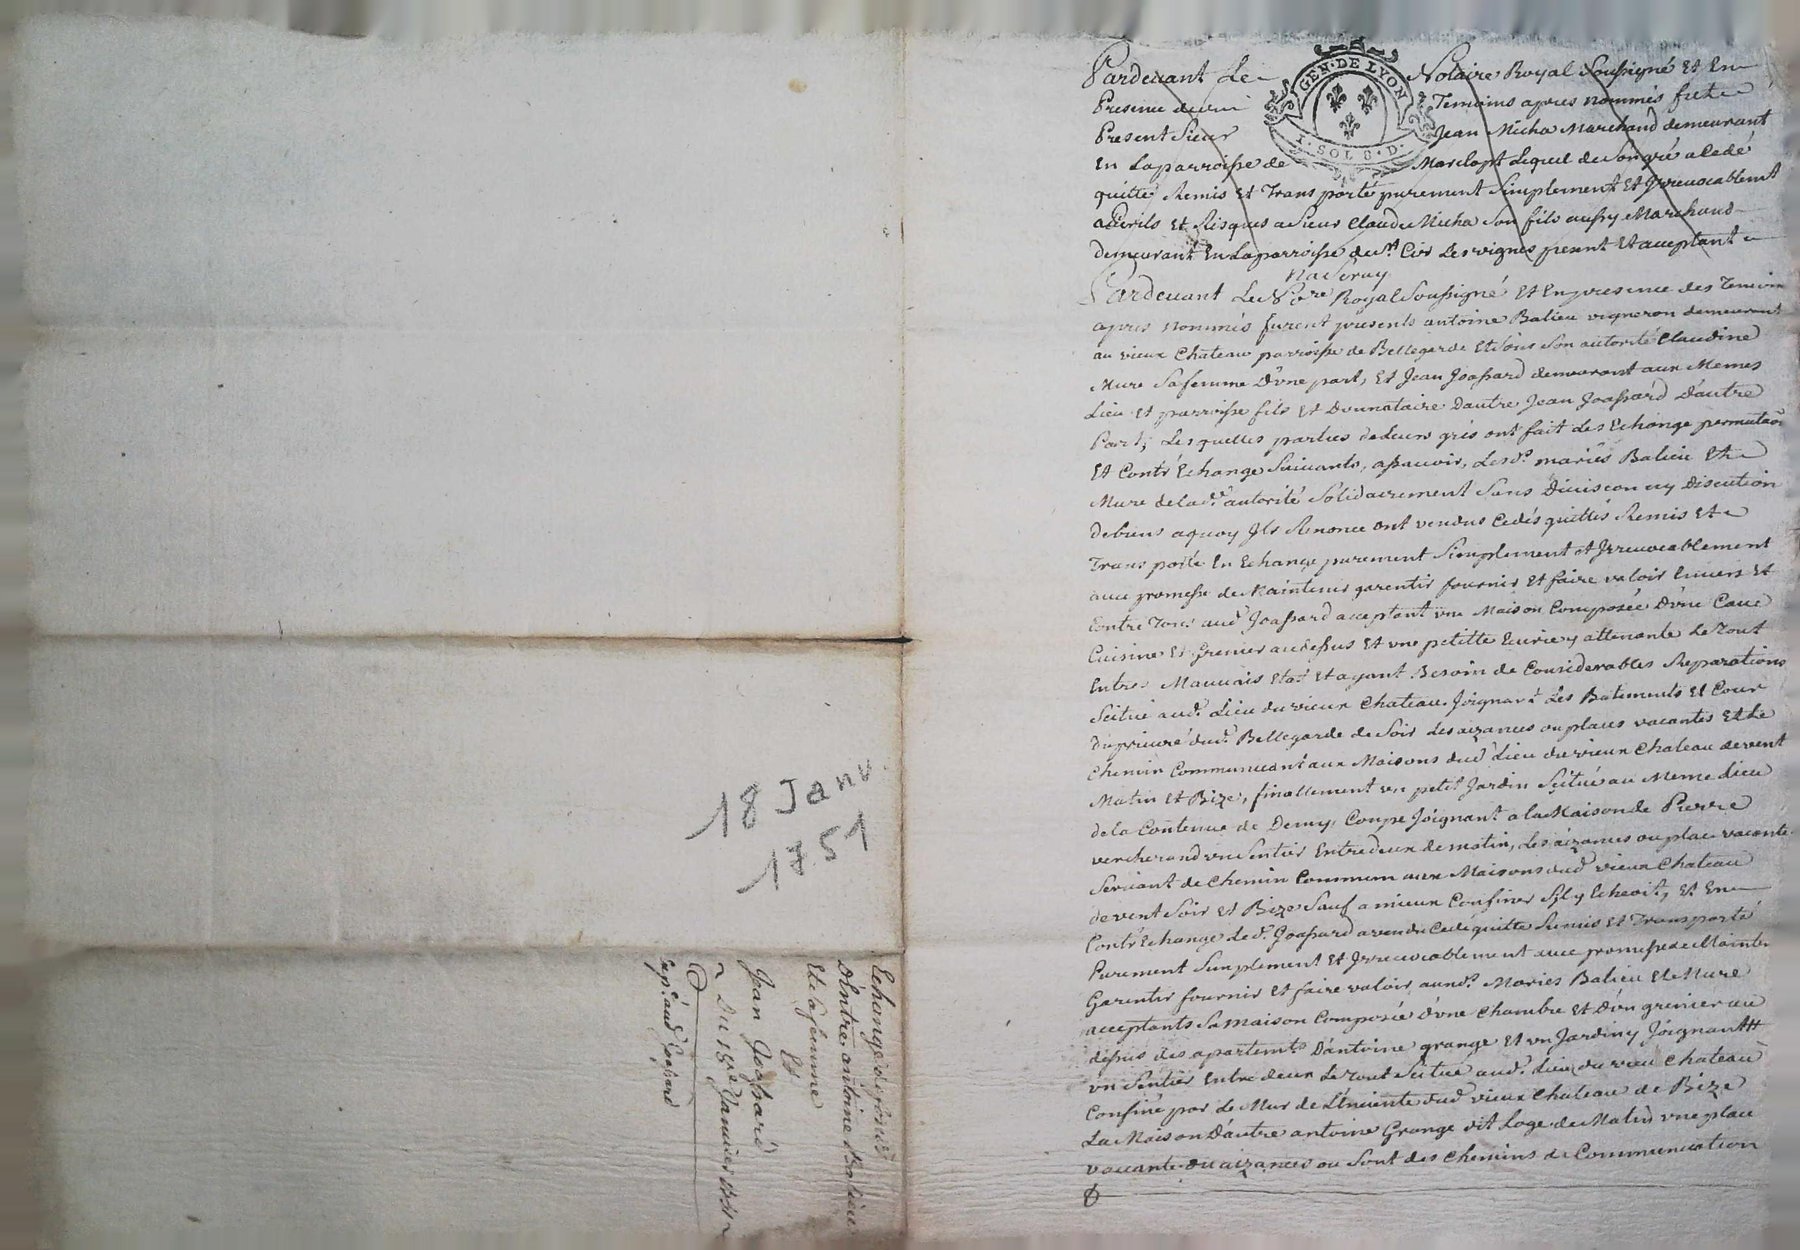 18 Janv
1751
Echange de fonds
D'Entre antoine Balieu
Et sa femme
Et
Jean Joassard
Du 18me Janvier 1751
Exp. aud Joassard
GEN·DE LYON
1·SOL 8·D·
Pardevant Le Notaire Royal Soussigné Et En
Presence de Temoins apres nommés fut
Present Sieur Jean Micha Marchand demeurant
En La parroisse de Marclopt Lequel de Son gré a Cedé
quitté Remis Et Transporté purement Simplement Et Irrevocablemt
a Perils Et Risques a Sieur Claude Micha Son fils aussy Marchand
demeurant En La parroisse de St. Cir Les vignes pesent Et acceptant
Pardevant Le Royal Soussigné Et En presence des Temoin
apres nommés furent presents antoine Balieu vigneron demeurant
au vieux Chateau parroisse de Bellegarde Et Sous Son autorité Claudine
Mure Sa femme D'vne part, Et Jean Joassard demeurant aux Memes
Lieu Et parroisse fils Et Donnataire Dautre Jean Joassard D'autre
Part; Lesquelles parties de Leurs grés ont fait des Echange permutaõn
Et Contr'Echange Suivants, assavoir, Lesd. mariés Balieu Et
Mure de lad. autorité Solidairement Sans Division ny Discution
de biens aquoy Ils Renonce ont vendus Cedés quittés Remis Et
Transporté En Echange purement Simplement et Irrevocablement
avec promesse de Maintenir garentir fournir Et faire valoir Envers Et
Contre Tous aud. Joassard acceptant vne Maison Composée D'vne Cave
Cuisine Et Grenier au dessus Et vne petitte Ecurie y attenante Le Tout
En tres Mauvais Etat Et ayant Besoin de Considerables Reparations
Scitué aud. Lieu du vieux Chateau Joignant Les Batiments Et Cour
du prieuré dud. Bellegarde de Soir Les aizances ou places vacantes Et Le
Chemin Communicant aux Maisons dud. Lieu du vieux Chateau de vent
Matin Et Bize, finallement vn petit Jardin Scitué au Meme Lieu
de la Contenue de Demy Coupe Joignant a la Maison de Pierre
vercherand vn Sentier Entre deux de matin, Les aizances ou place vacante
Servant de Chemin Commun aux Maisons dud. vieux Chateau
de vent Soir Et Bize Sauf a mieux Confiner Sil y Echeoit; Et En
Contr'Echange Led. Joassard a vendu Cedé quitté Remis Et Transporté
Purement Simplement Et Irrevocablement avec promesse de Mainteñ
Garentir fournir Et faire valoir auxd. Mariés Balieu Et Mure
acceptants Sa Maison Composée D'vne Chambre Et D'vn grenier au
dessus des apartemts. D'antoine grange Et vn Jardin y Joignant
vn Sentier Entre deux Le Tout Scitué aud. Lieu du vieux Chateau
Confiné par Le Mur de L'Enceinte dud vieux Chateau de Bize
La Maison D'autre antoine Grange dit Loge de Matin vne place
vacante ou aizances ou Sont des Chemins de Communication